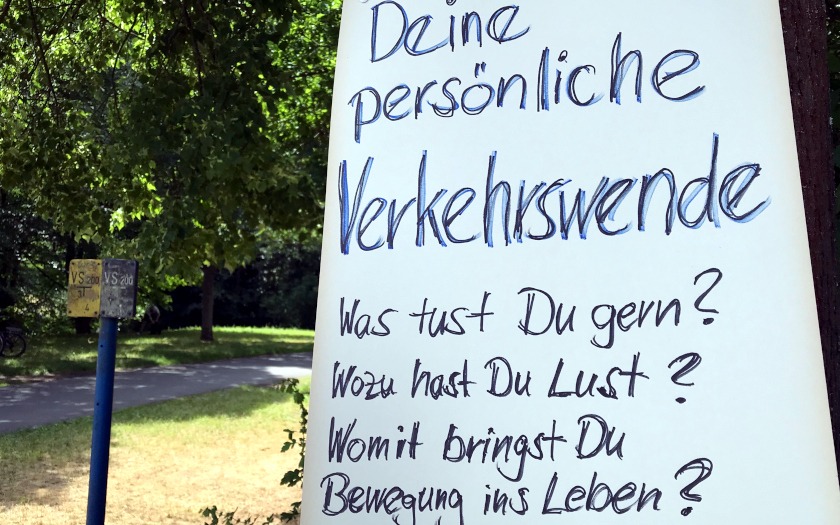 Deine
persönliche
Verkehrswende
Was tust Du gern?
Wozu hast Du Lust?
Womit bringst Du
Bewegung ins Leben?
VS 200
VS 200